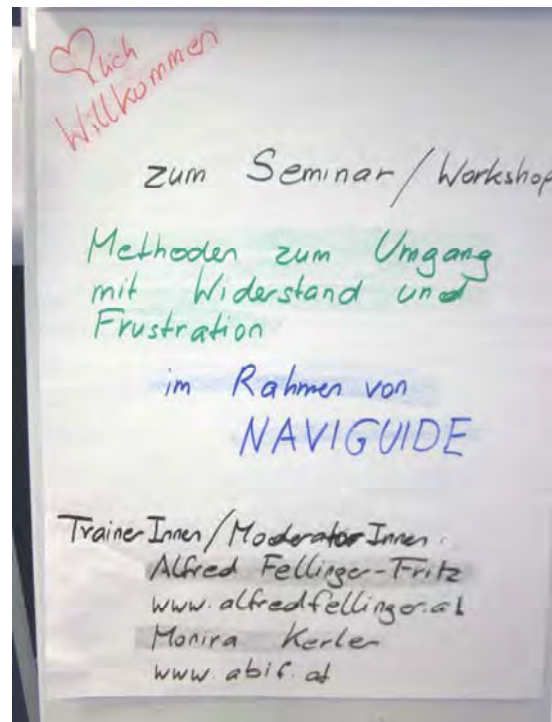 ♡lich
Willkommen
zum Seminar/Workshop
Methoden zum Umgang
mit Widerstand und
Frustration
im Rahmen von
NAVIGUIDE
TrainerInnen/ModeratorInnen:
Alfred Fellinger-Fritz
www.alfredfellinger.at
Monira Kerler
www.abif.at